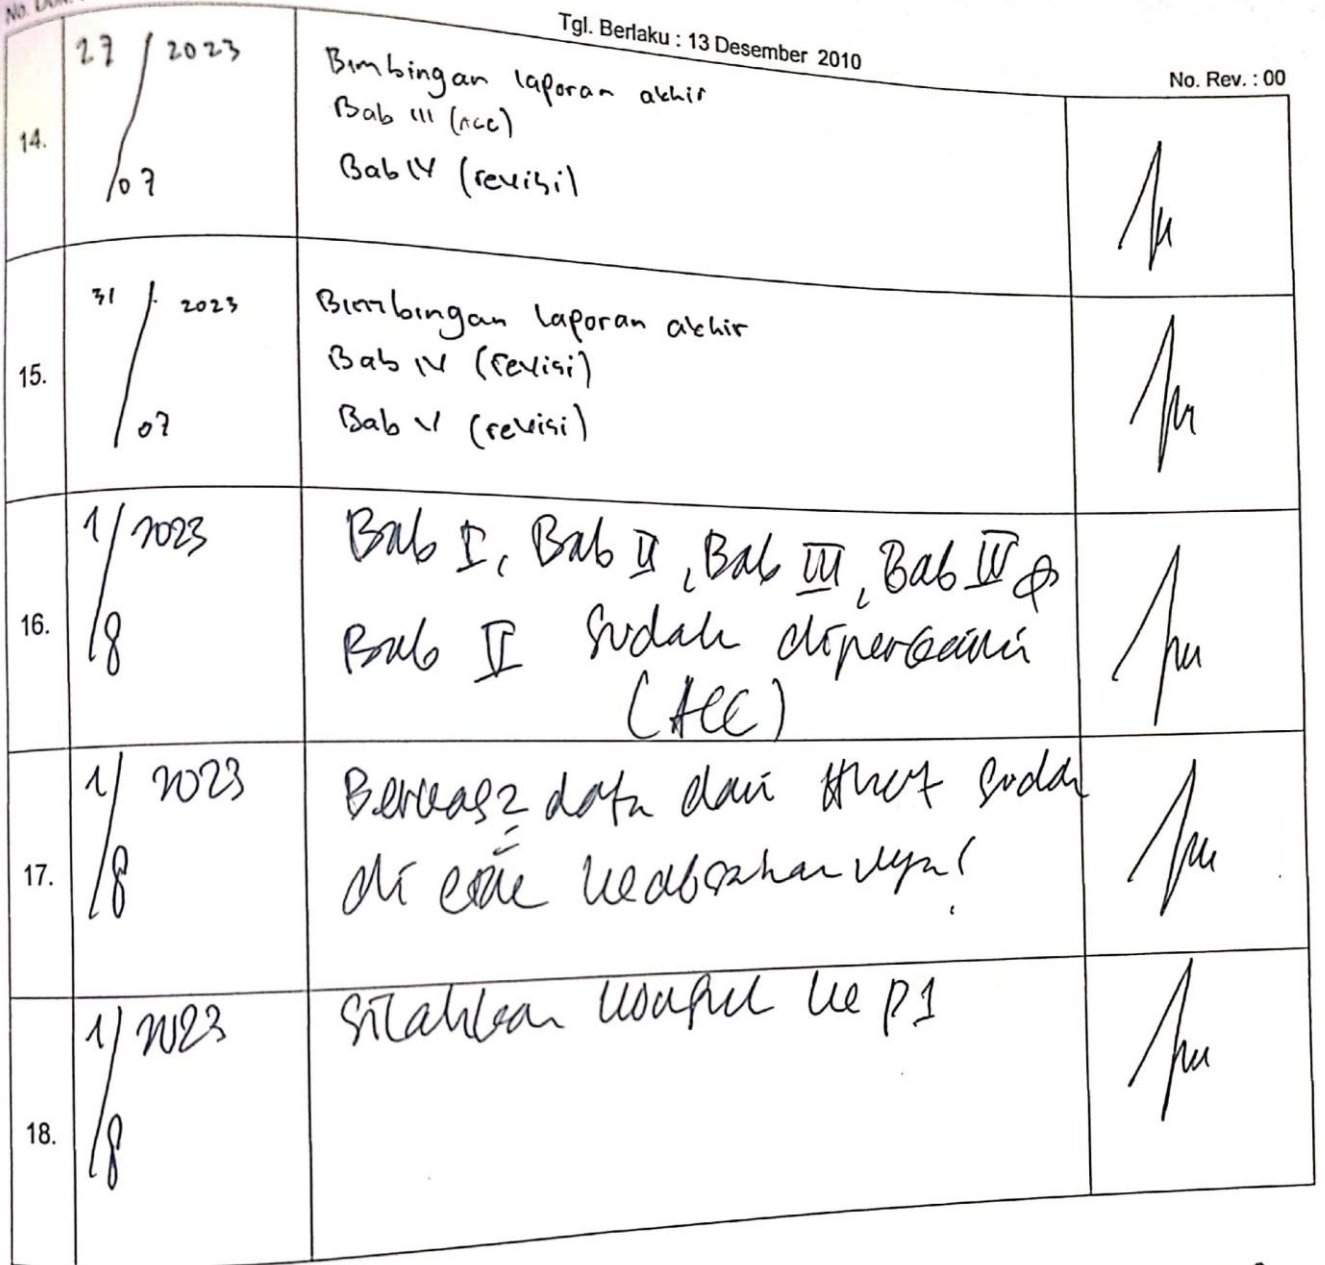 No. Dok.
Tgl. Berlaku : 13 Desember 2010
No. Rev. : 00
14.
27 / 2023
/07
Bimbingan laporan akhir
Bab III (acc)
Bab IV (revisi)
15.
31 / 2023
/07
Bimbingan laporan akhir
Bab IV (revisi)
Bab V (revisi)
16.
1/2023
/8
Bab I, Bab II, Bab III, Bab IV &
Bab V sudah diperbaiki
(ACC)
17.
1/2023
/8
Berkas2 data dari sudah
di cek keabsahannya!
18.
1/2023
/8
Silahkan konsul ke P1